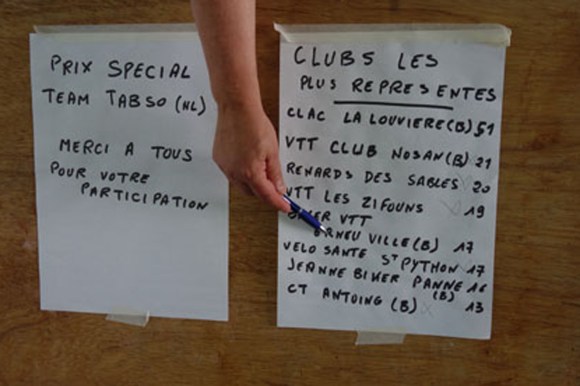 PRIX SPECIAL
TEAM TABSO (NL)
MERCI A TOUS
POUR VOTRE
PARTICIPATION
CLUBS LES
PLUS REPRESENTES
CLAC LA LOUVIERE (B) 51
VTT CLUB NOSAN (B) 21
RENARDS DES SABLES 20
VTT LES ZIFOUNS 19
BIKER VTT
VILLE (B) 17
VELO SANTE ST PYTHON 17
JEANNE BIKER PANNE 16
(B)
CT ANTOING (B) 13